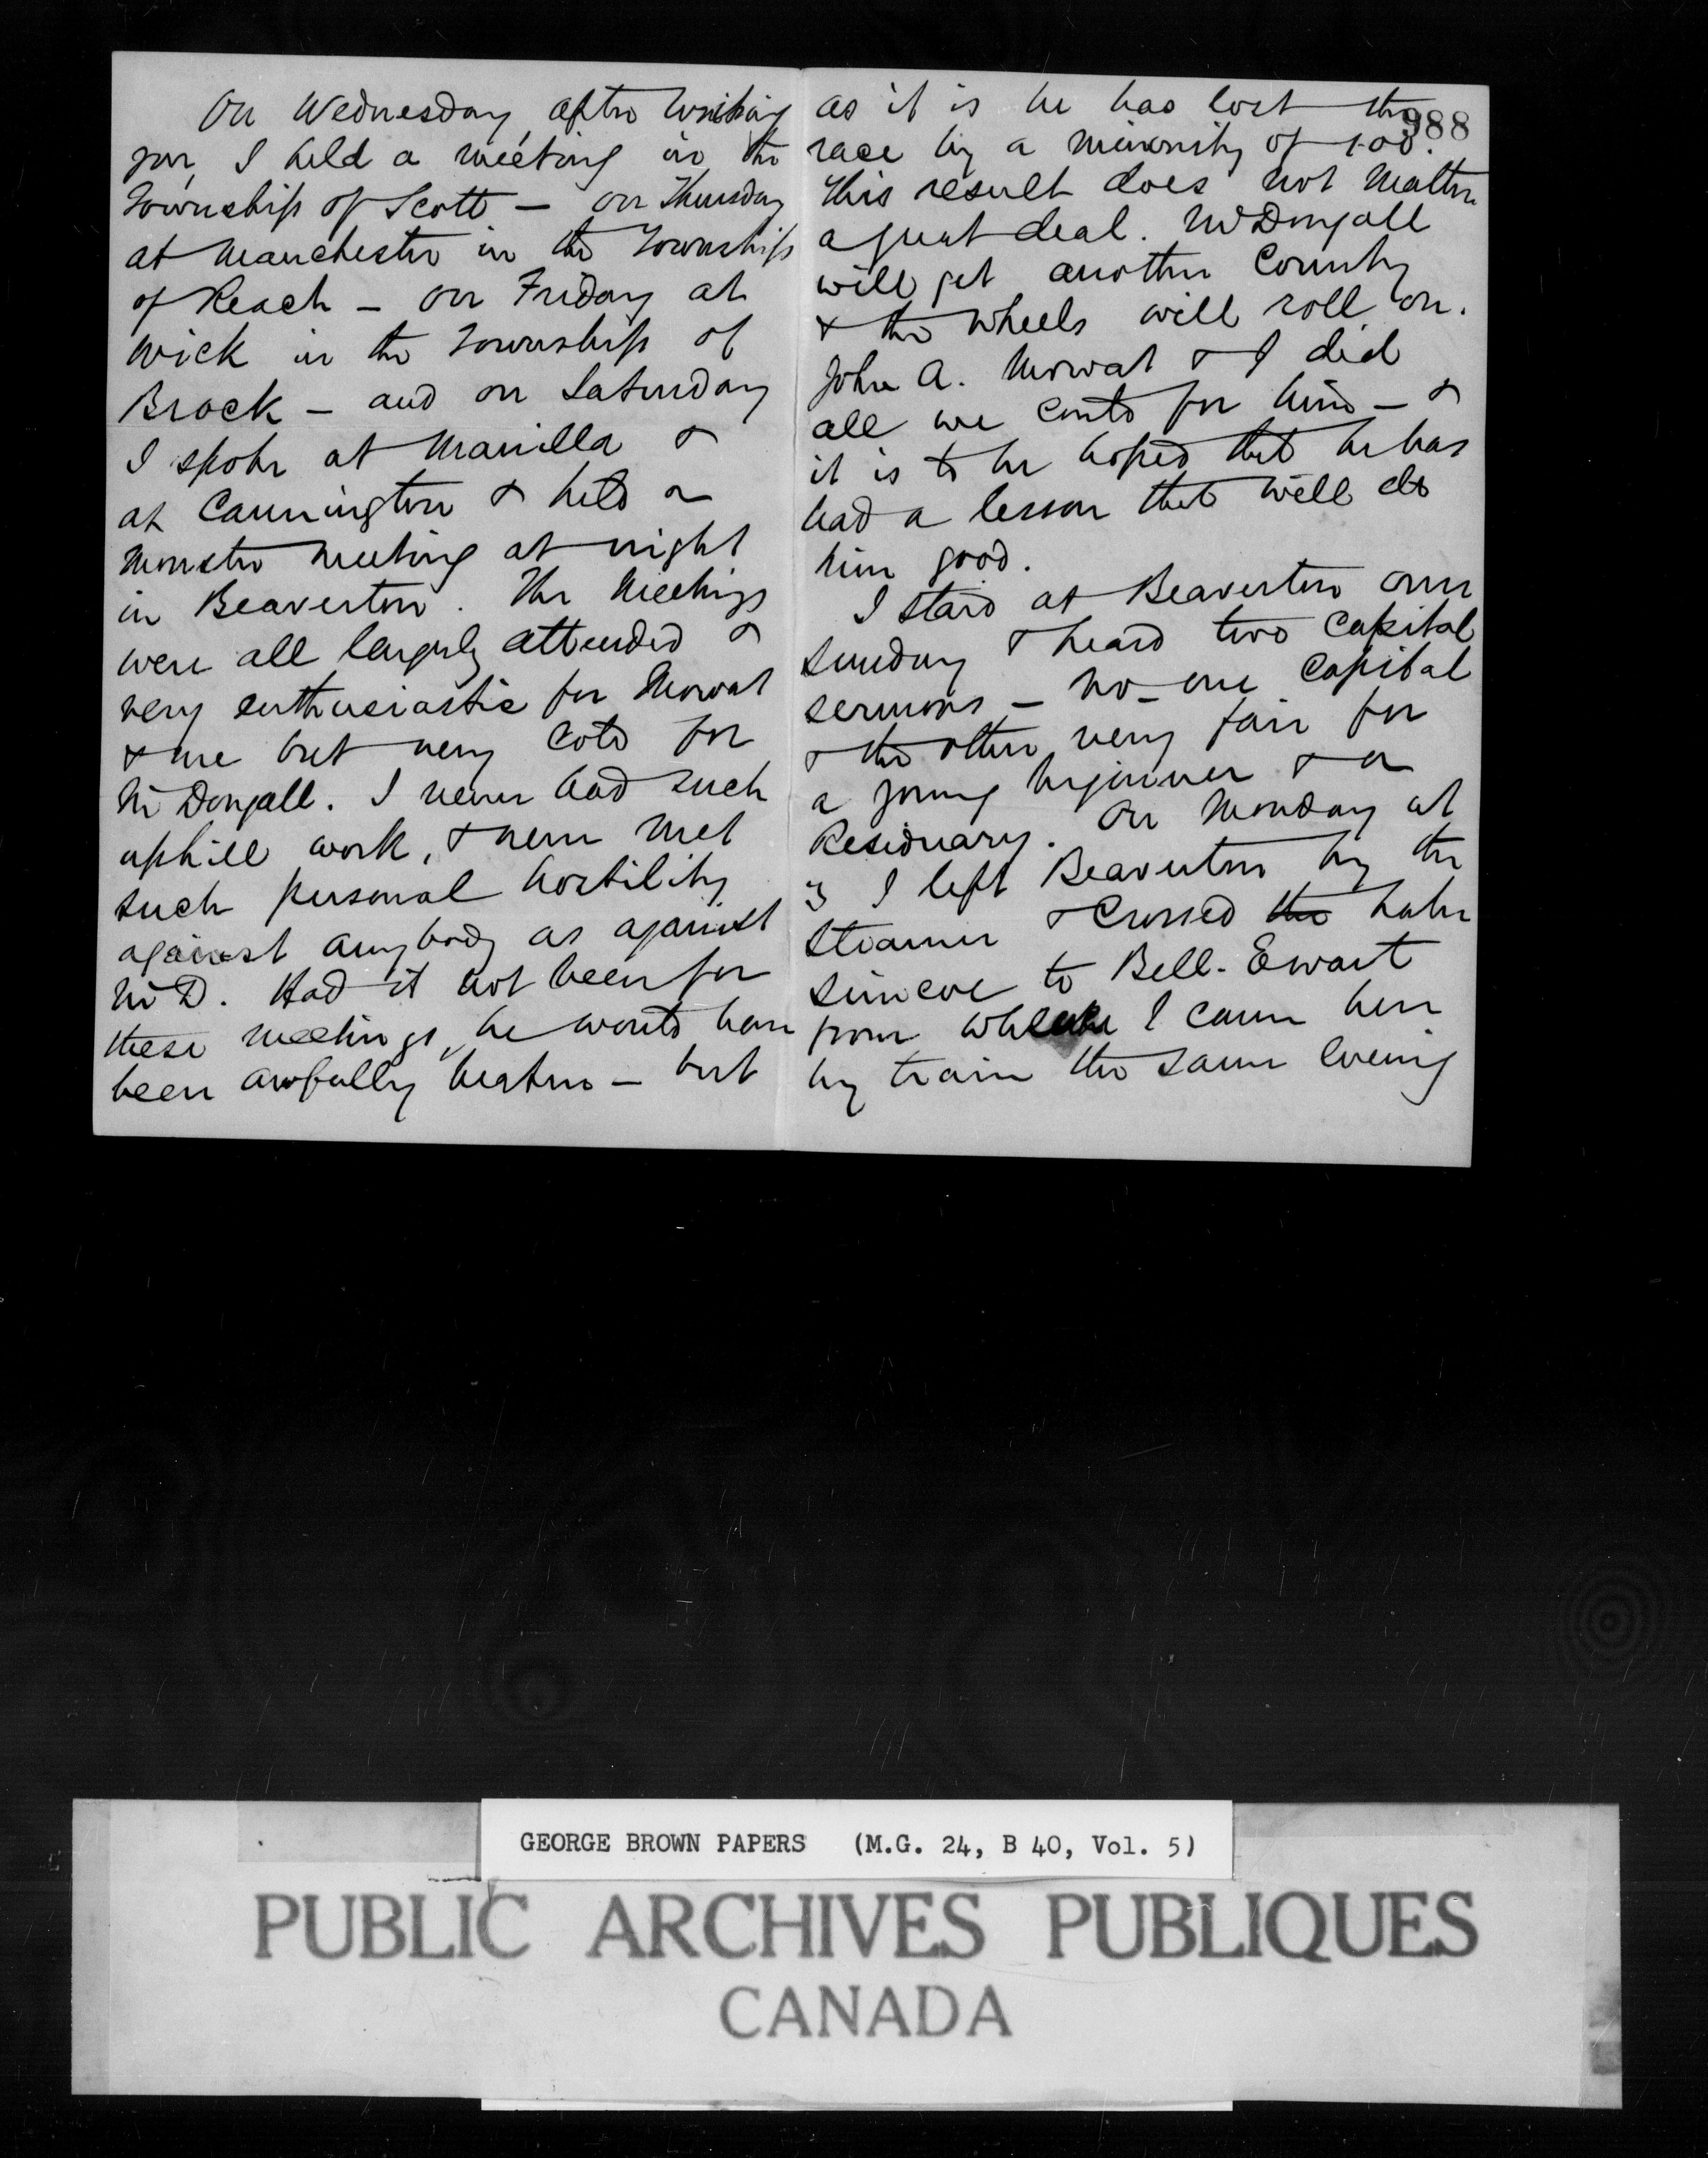 On Wednesday, after writing
you, I held a meeting in the
Township of Scott — on Thursday
at Manchester in the Township
of Reach — on Friday at
Wick in the Township of
Brock — and on Saturday
I spoke at Manilla &
at Cannington & held a
monster meeting at night
in Beaverton. The Meetings
were all largely attended &
very enthusiastic for Mowat
& me but very cold for
McDougall. I never had such
uphill work, & never met
such personal hostility
against anybody as against
McD. Had it not been for
these meetings, he would have
been awfully beaten — but
988
as it is he has lost the
race by a minority of 100.
This result does not matter
a great deal. McDougall
will get another County
& the wheels will roll on.
John A. Mowat & I did
all we could for him — &
it is to be hoped that he has
had a lesson that will do
him good.
I staid at Beaverton over
Sunday & heard two capital
sermons — no — one capital
& the other very fair for
a young beginner & a
Residuary. On Monday at
3 I left Beaverton by the
Steamer & crossed the Lake
Simcoe to Bell-Ewart
from whence I came here
by train the same evening
GEORGE BROWN PAPERS (M.G. 24, B 40, Vol. 5)
PUBLIC ARCHIVES PUBLIQUES
CANADA